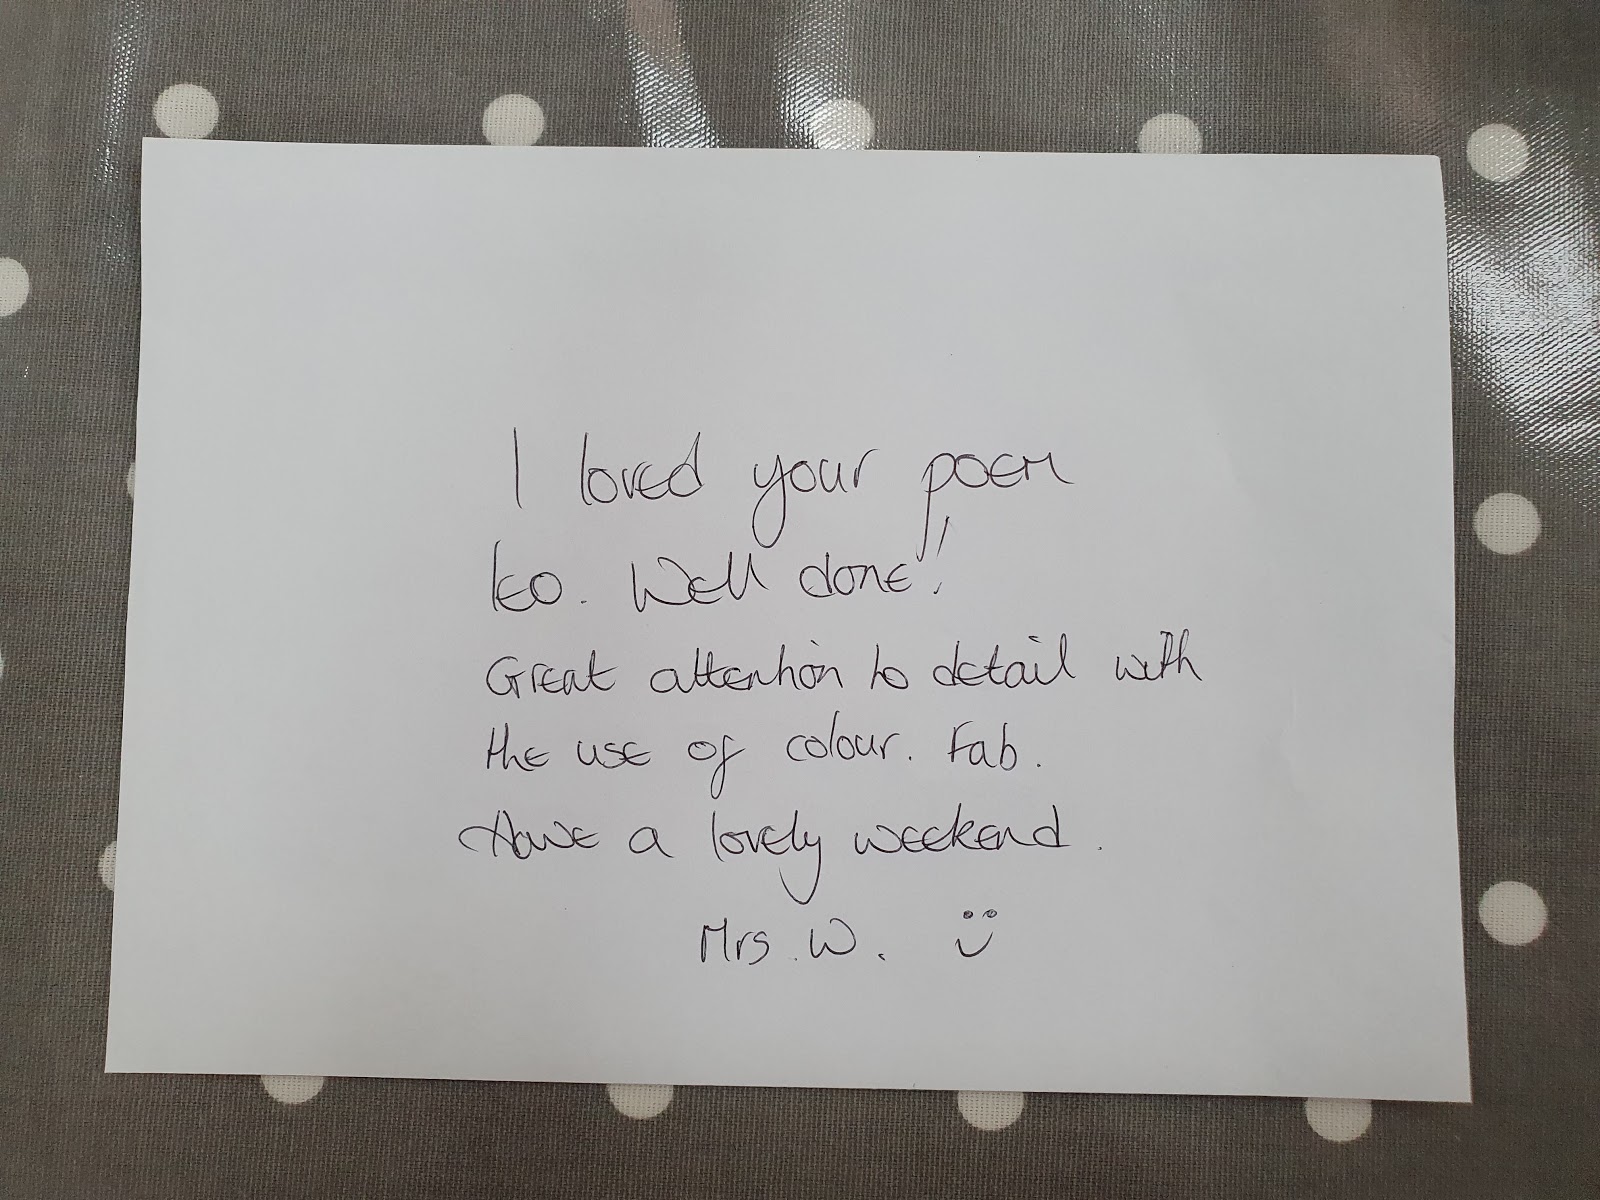 I loved your poem
Leo. Well done!
Great attention to detail with
the use of colour. Fab.
Have a lovely weekend.
Mrs. W. :)